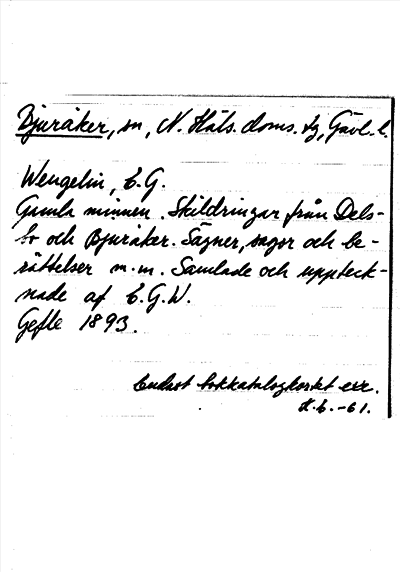 Bjuråker, sn, N. Häls. doms. tg, Gävl. l.
Wengelin, E.G.
Gamla minnen. Skildringar från Dels-
bo och Bjuråker. Sägner, sagor och be-
rättelser m.m. Samlade och uppteck-
nade af E.G.W.
Gefle 1893.
Endast bokkatalogkortet exc.
K.L. -61.